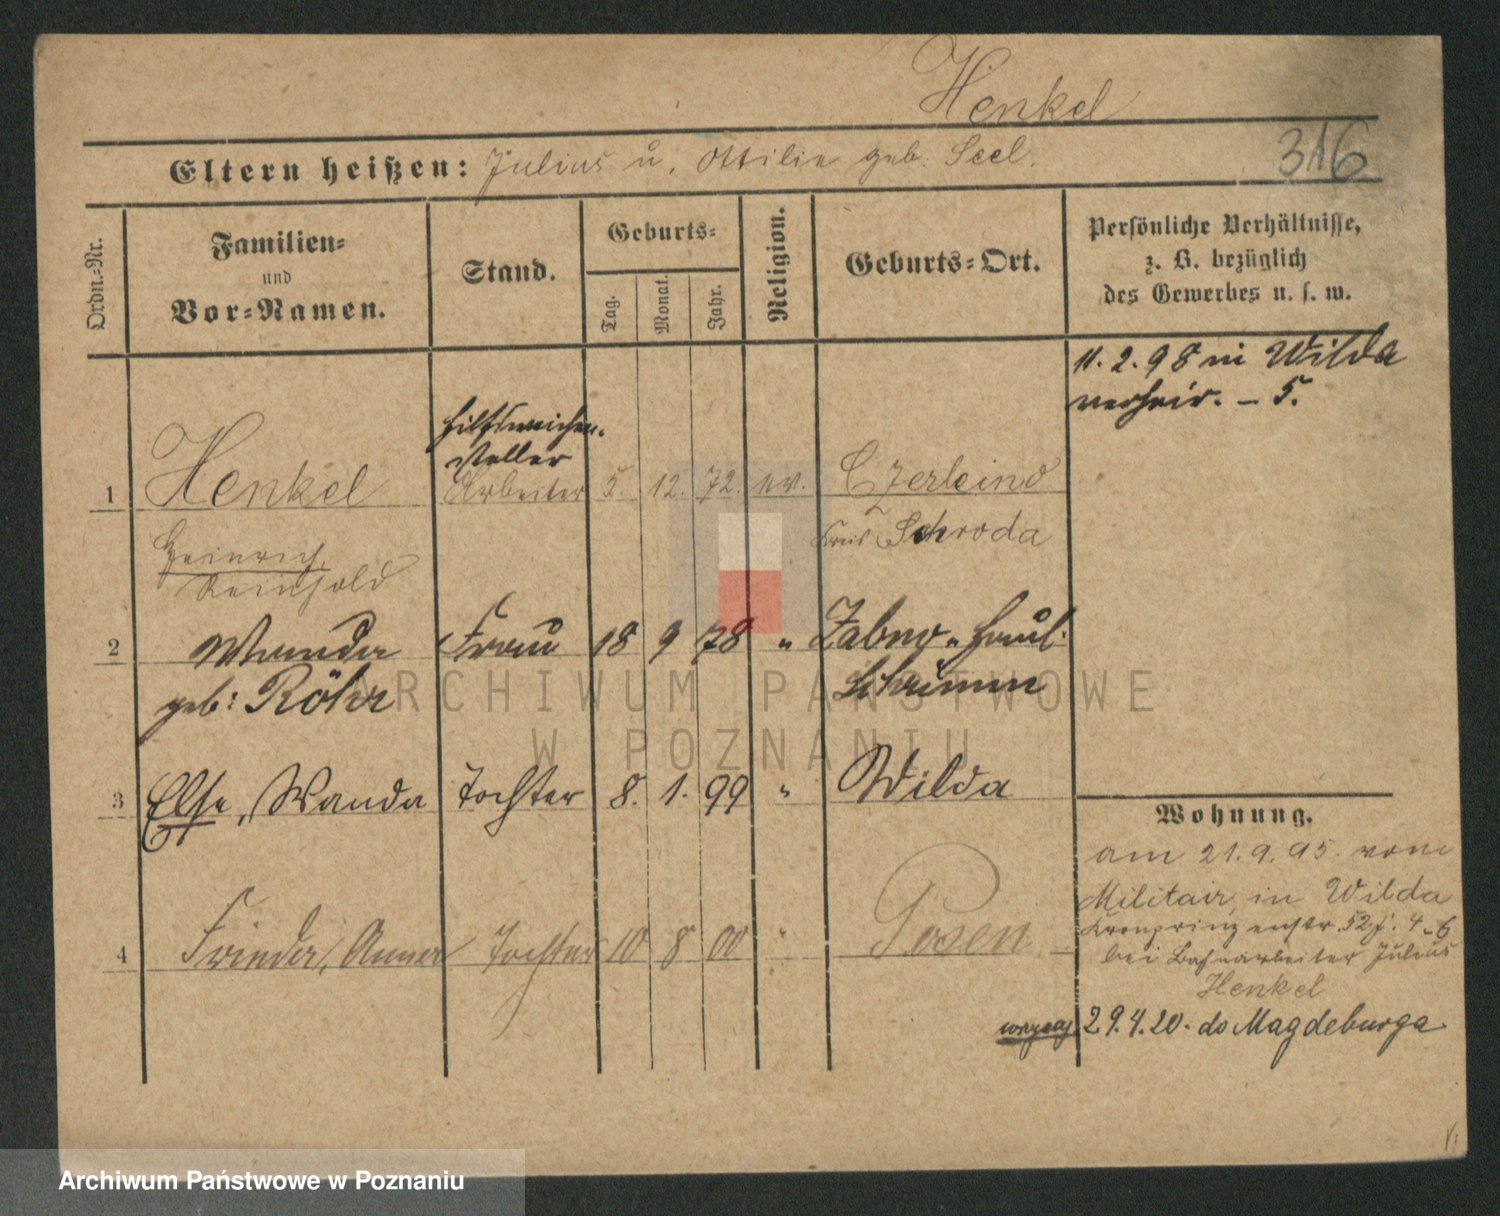 Henkel
316
Eltern heißen: Julius u. Ottilie geb. Seel.
Ordn.-Nr.
Familien- und Vor-Namen.
Stand.
Geburts-
Tag.
Monat.
Jahr.
Religion.
Geburts-Ort.
Persönliche Verhältnisse,
z. B. bezüglich
des Gewerbes u. s. w.
11. 2. 98 in Wilda
verheir. – 5.
Hilfsweichen-
steller
1 Henkel Arbeiter 5. 12. 72. ev. Czerleino
Kreis Schroda
Heinrich
Reinhold
2 Wanda Frau 18 9 78 " Zabno
geb: Röhr Schrimm
3 Else, Wanda Tochter 8. 1. 99 " Wilda
4 Frieda, Anna Tochter 10 8 00 " Posen
Wohnung.
am 21. 9. 95. vom
Militair in Wilda
Kronprinzenstr. 52
bei Bahnarbeiter Julius
Henkel
29. 4. 20. do Magdeburga
ARCHIWUM PAŃSTWOWE
W POZNANIU
Archiwum Państwowe w Poznaniu